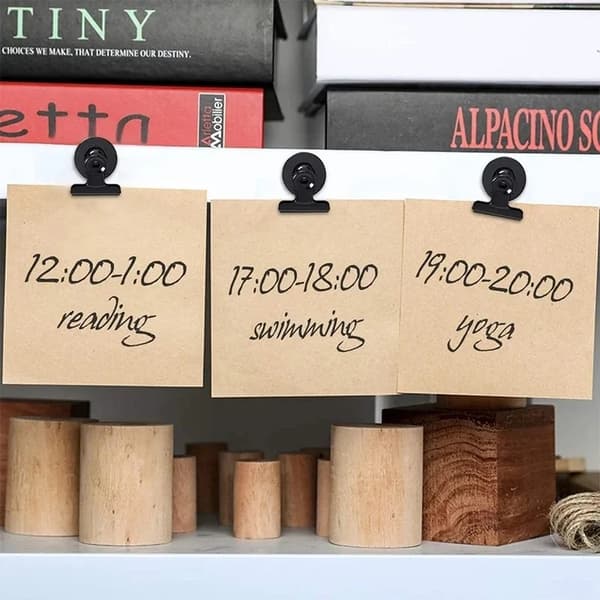 TINY
CHOICES WE MAKE, THAT DETERMINE OUR DESTINY.
etta
Arletta
Mobilier
ALPACINO SC
12:00-1:00
reading
17:00-18:00
swimming
19:00-20:00
yoga